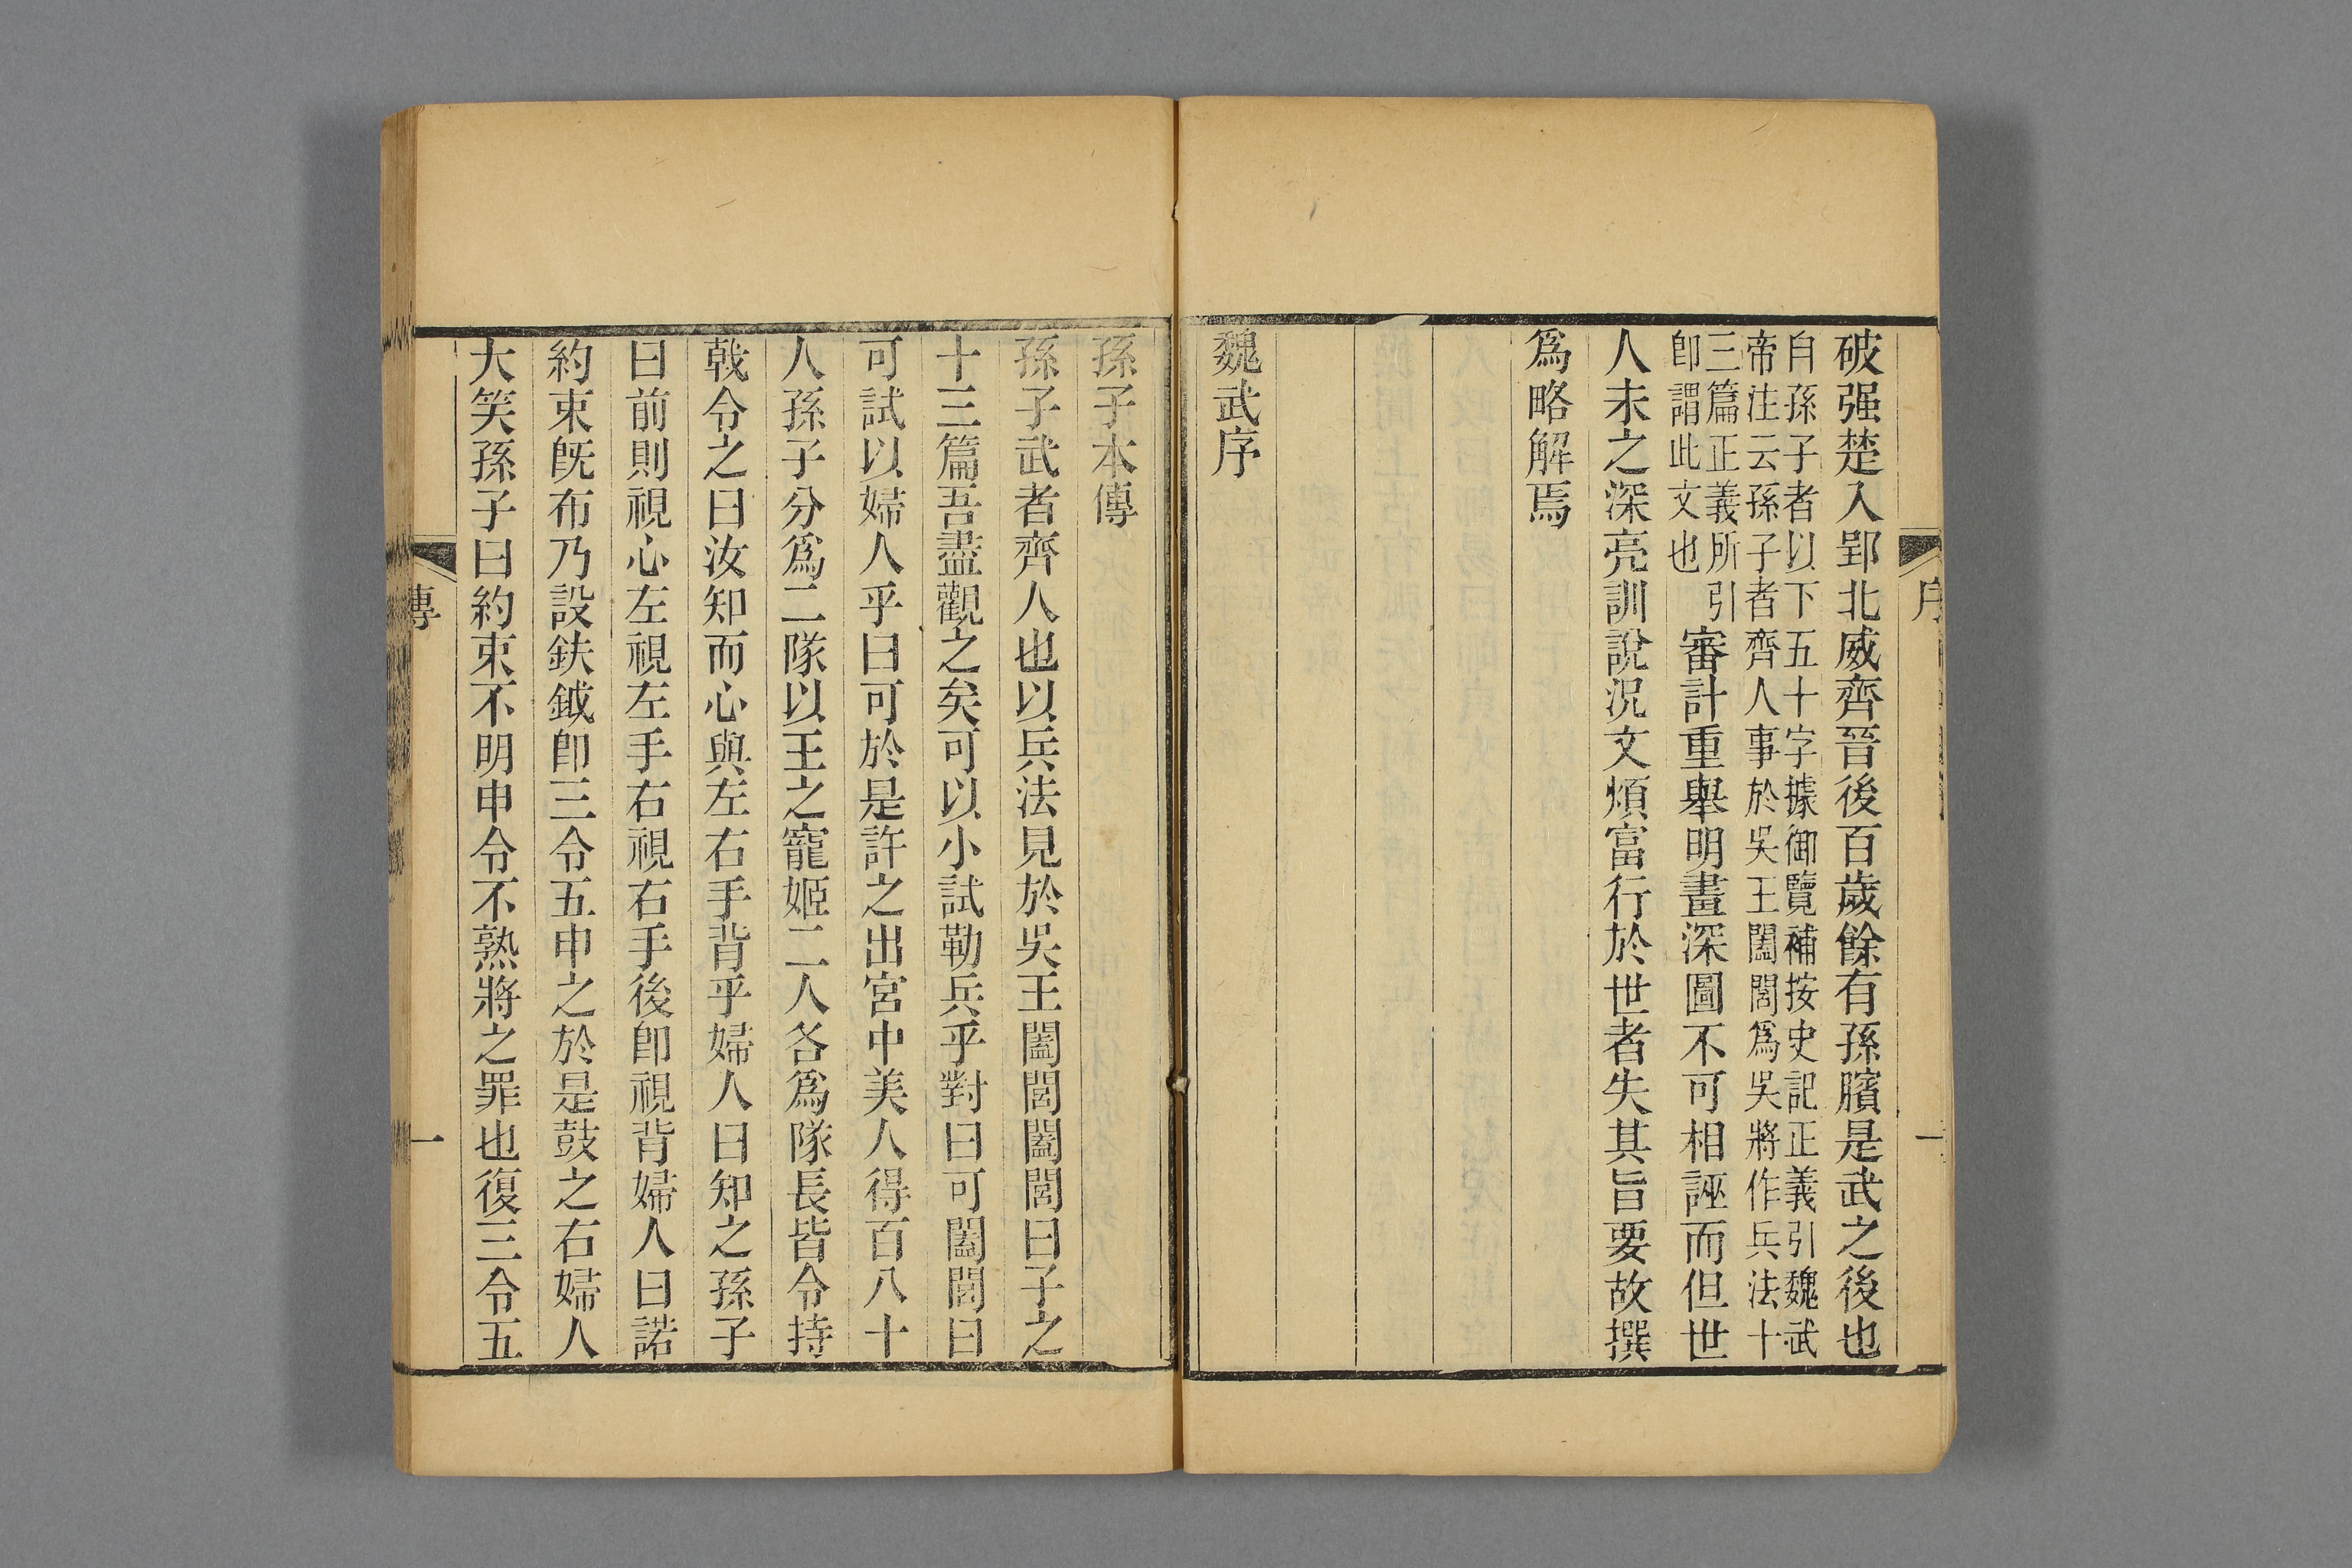 序
一
破强楚入郢北威齊晉後百歲餘有孫臏是武之後也
自孫子者以下五十字據御覽補按史記正義引魏武
帝注云孫子者齊人事於吳王闔閭爲吳將作兵法十
三篇正義所引
卽謂此文也
審計重舉明畫深圖不可相誣而但世
人未之深亮訓說況文煩富行於世者失其旨要故撰
爲略解焉
魏武序
孫子本傳
孫子武者齊人也以兵法見於吳王闔閭闔閭曰子之
十三篇吾盡觀之矣可以小試勒兵乎對曰可闔閭曰
可試以婦人乎曰可於是許之出宮中美人得百八十
人孫子分爲二隊以王之寵姬二人各爲隊長皆令持
戟令之曰汝知而心與左右手背乎婦人曰知之孫子
曰前則視心左視左手右視右手後卽視背婦人曰諾
約束旣布乃設鈇鉞卽三令五申之於是鼓之右婦人
大笑孫子曰約束不明申令不熟將之罪也復三令五
傳
一